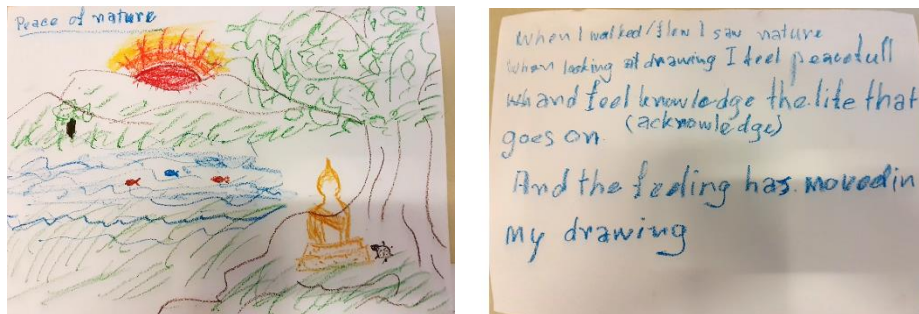 Peace of nature
When I walked/flew I saw nature
When looking at drawing I feel peacefull
and feel knowledge the life that
(acknowledge)
goes on.
And the feeling has moved in
my drawing